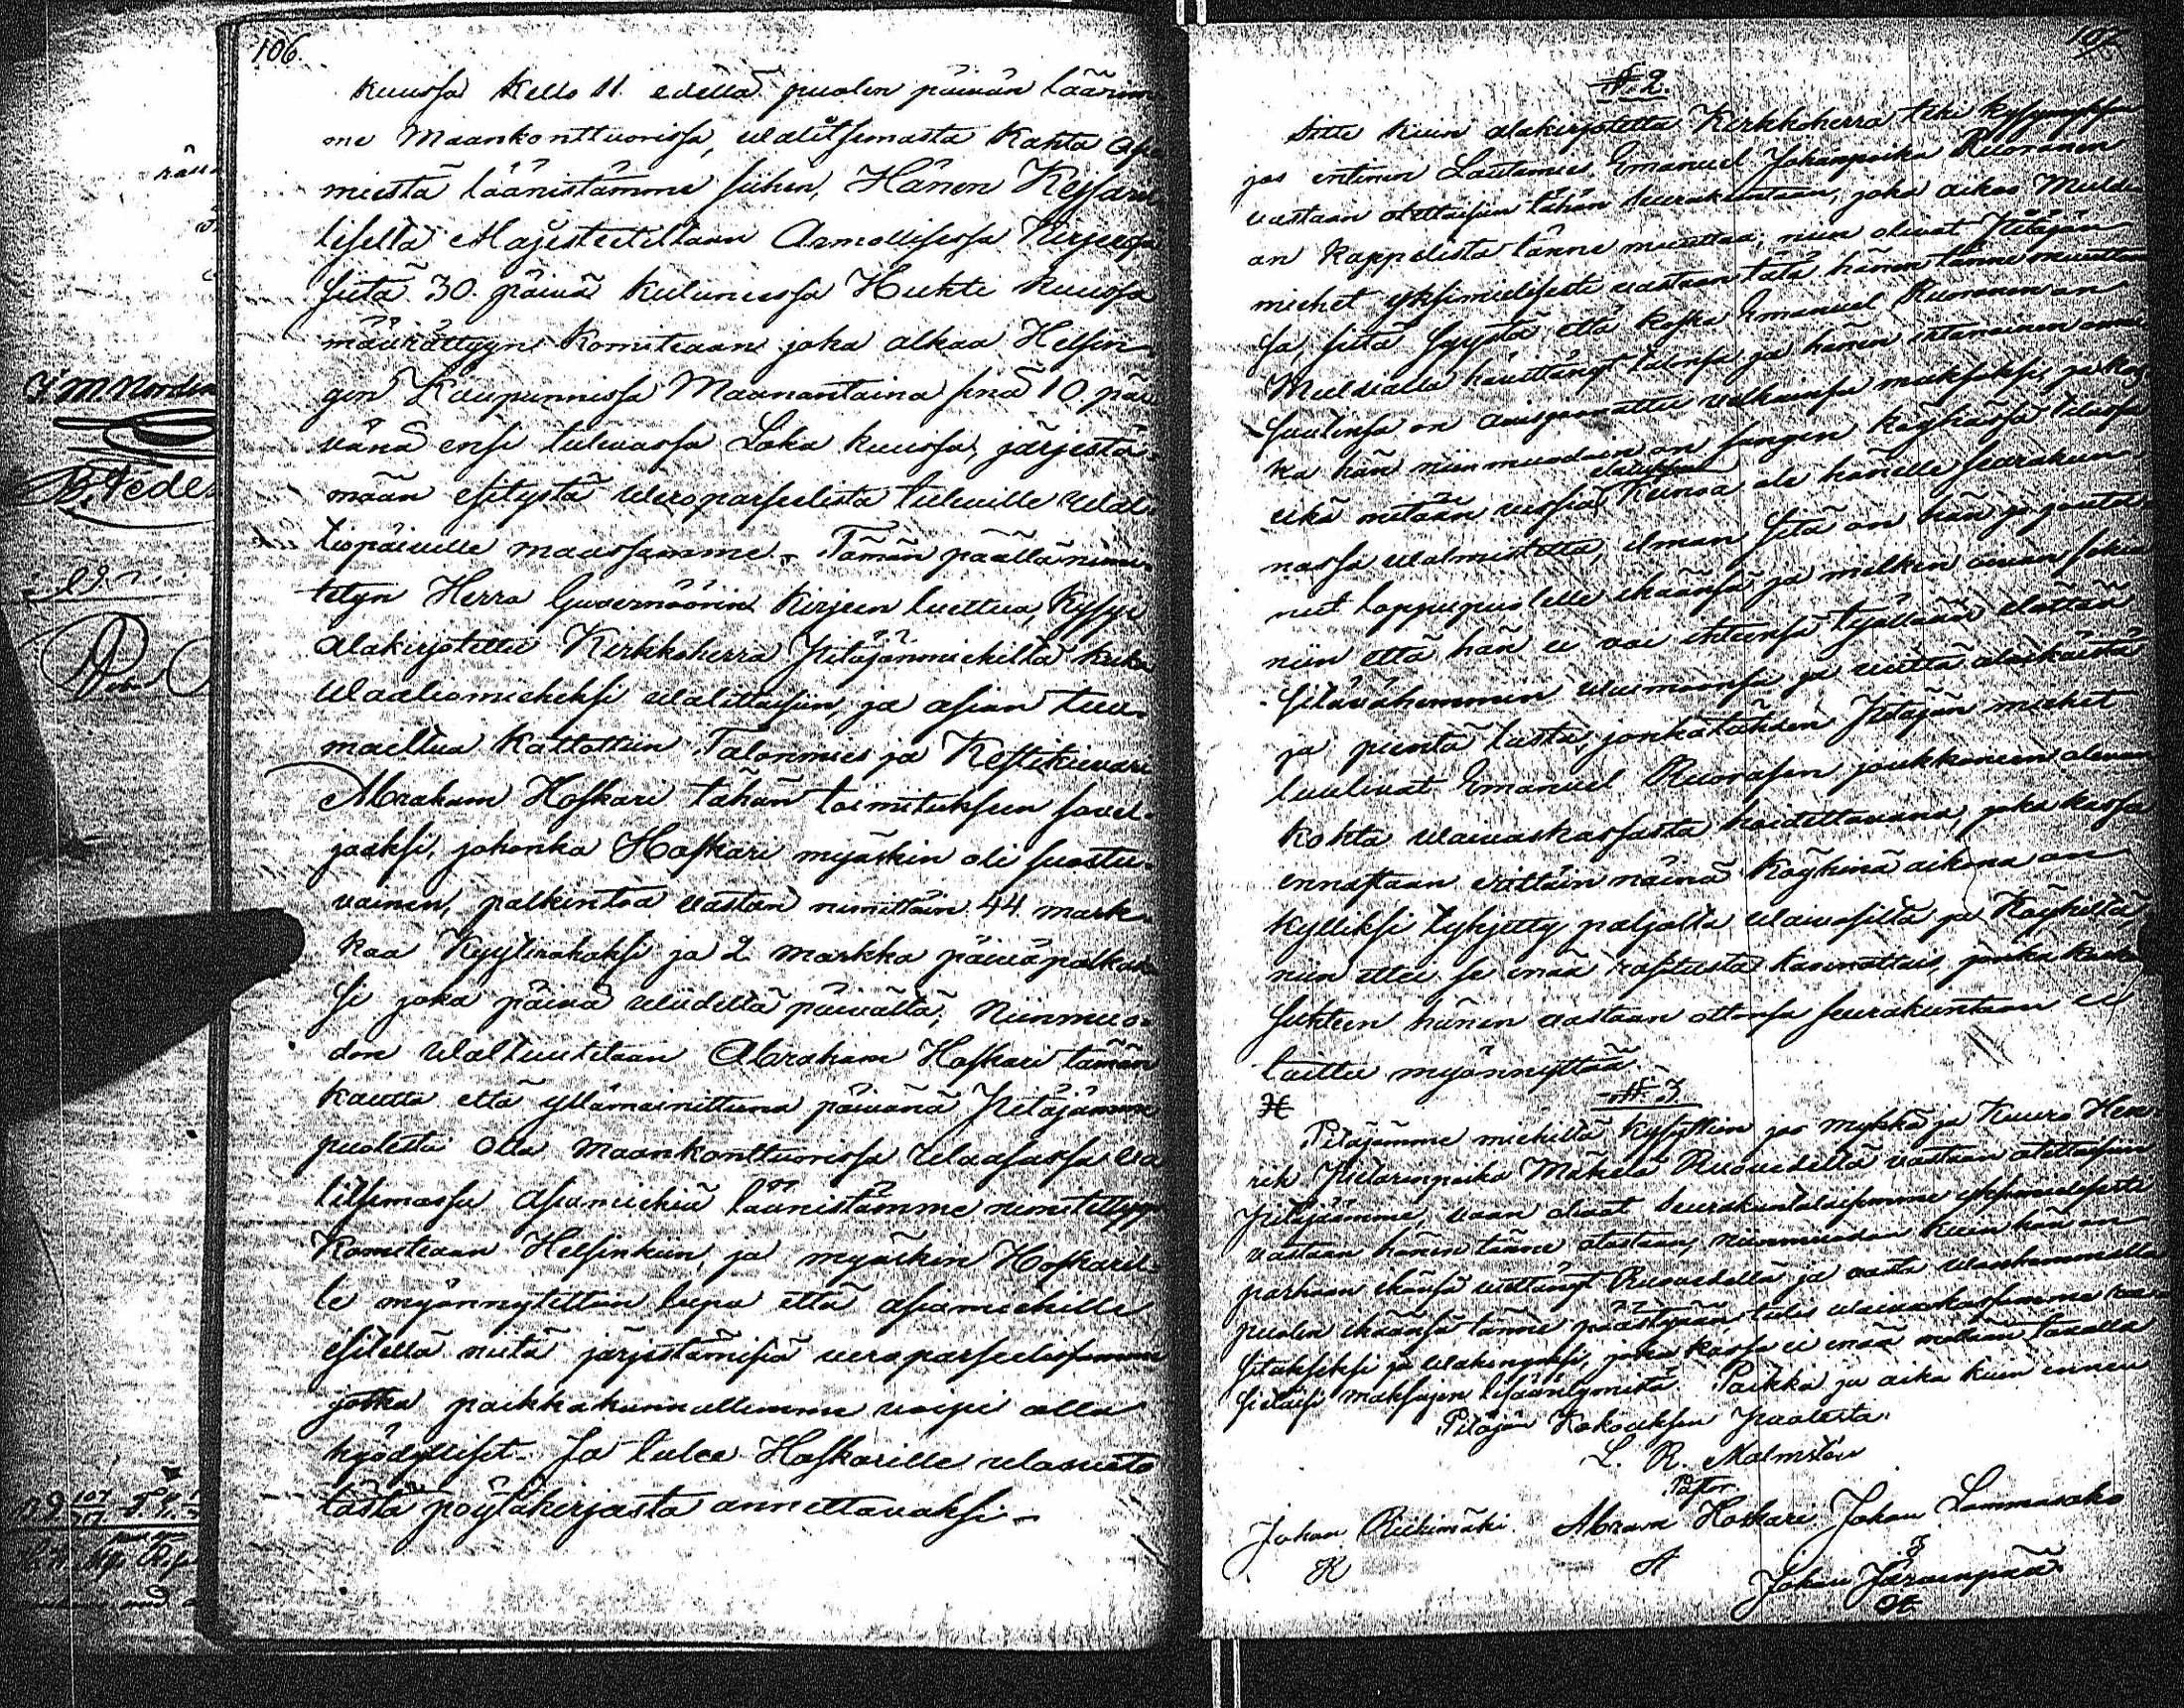 106.
kuussa Kello 11. edellä puolen päivän läänim-
me Maankonttuorissa, walitsemasta Kahta Asia
miestä läänistämme siihen, Hänen Keisaril
liselta Majesteetiltaan Armollisessa Kirjeessä
siitä 30. päivä kuluneessa Huhti kuussa
määrättyyn Komiteaan joka alkaa Helsin-
gin Kaupunnissa Maanantaina sinä 10. päi
vänä ensi tulevassa Loka kuussa, järjestä-
mään esitystä weroparseelista tuleville wal-
tiopäiville maassamme. Tämän päällä nimi-
tetyn Herra Guvernöörin Kirjeen luettua, Kysyi
alakirjotettu Kirkkoherra Pitäjänmiehiltä kuka
waaliomieheksi walittaisiin, ja asian tuu-
maittua kattottiin Talonmies ja Kestikievari
Abraham Hoskari tähän toimitukseen sovel-
jaaksi, johonka Hoskari myöskin oli suostu-
vainen, palkintoa vastan nimittäin 44 mark-
kaa Kyytirahaksi ja 2 markka päiväpalkak
si joka päivä viideltä päivältä; Niinmuo-
don waltuutetaan Abraham Hoskari tämän
kautta että yllämainittuna päivänä Pitäjämme
puolesta olla Maankonttuorissa Waasassa va
litsemassa asiamiehiä läänistämme nimitettyyn
Komiteaan Helsinkiin, ja myöskin Hoskaril-
le myönnytettiin lupa että asiamiehille
esitellä niitä järjestämisiä veroparseeleissamme
jotka paikkakunnallemme voipi olla
hyödylliset. Ja tulee Hoskarille ulosveto
tästä pöytäkirjasta annettavaksi.
107.
N. 2.
Sitte kuin alakirjotettu Kirkkoherra teki kysymyksen
jos entinen Lautamies Emanuel Johanpoika Ruononen
vastaan otettaisiin tähän seurakuntaan, joka aikoo Multi
an kappelista tänne muuttaa, niin olivat Pitäjän
miehet yksimielisesti vastaan tätä hänen tänne muuttam
sa, siitä syystä että koska Emanuel Ruononen on
Multialla hävittänyt talonsa ja hänen irtanainen omai
suutensa on velkainsa maksoksi, ja kos
ka hän niinmuodoin on sangen köyhässä tilassa
eikä mitään vissiä Keinoa ole hänelle seurakun
nassa walmistettu, ilman sitä on hän jo joutu
nut loppupuolelle ikäänsä ja melkein
niin että hän ei voi itteensä työllänsä elättää
sitävähemmin waimoansa ja viittä alaikäistä
ja pientä lasta, jonkatähden Pitäjän miehet
luulivat Emanuel Ruonosen joukkoneen olevan
kohta waivaskassasta hoidettavana, joka kassa
ennastaan erittäin näinä köyhinä aikoina on
kylliksi tyhjetty paljolta waivasilta ja Köyhiltä,
niin ettei se enää rasitusta kannattais, jonka
suhteen hänen vastaan ottonsa seurakuntaan ei
taittu myönnyttää.
N. 3.
Pitäjämme miehiltä kysyttiin jos mykkä ja Kuuro Hen-
rik Pietarinpoika Mäkelä Ruovedeltä vastaan otettaisiin
Pitäjäämme, vaan olivat Seurakuntalaisemme yksimielisesti
vastaan hänen tänne otostaan, niinmuodon kuin hän on
parhaan ikänsä viettänyt Ruovedellä ja vasta wanhemmalla
puolen ikäänsä tänne päästyään tulis waivaskassamme
situkseksi ja wahingoksi, joka kassa ei enää millään tavalla
sietäisi maksujen lisääntymistä. Paikka ja aika kuin ennen
Pitäjän Kokouksen puolesta:
L. R. Malmstén
Pastor
Johan Riihimäki Abram Hoskari Johan Lammasaho
Johan Järvenpää